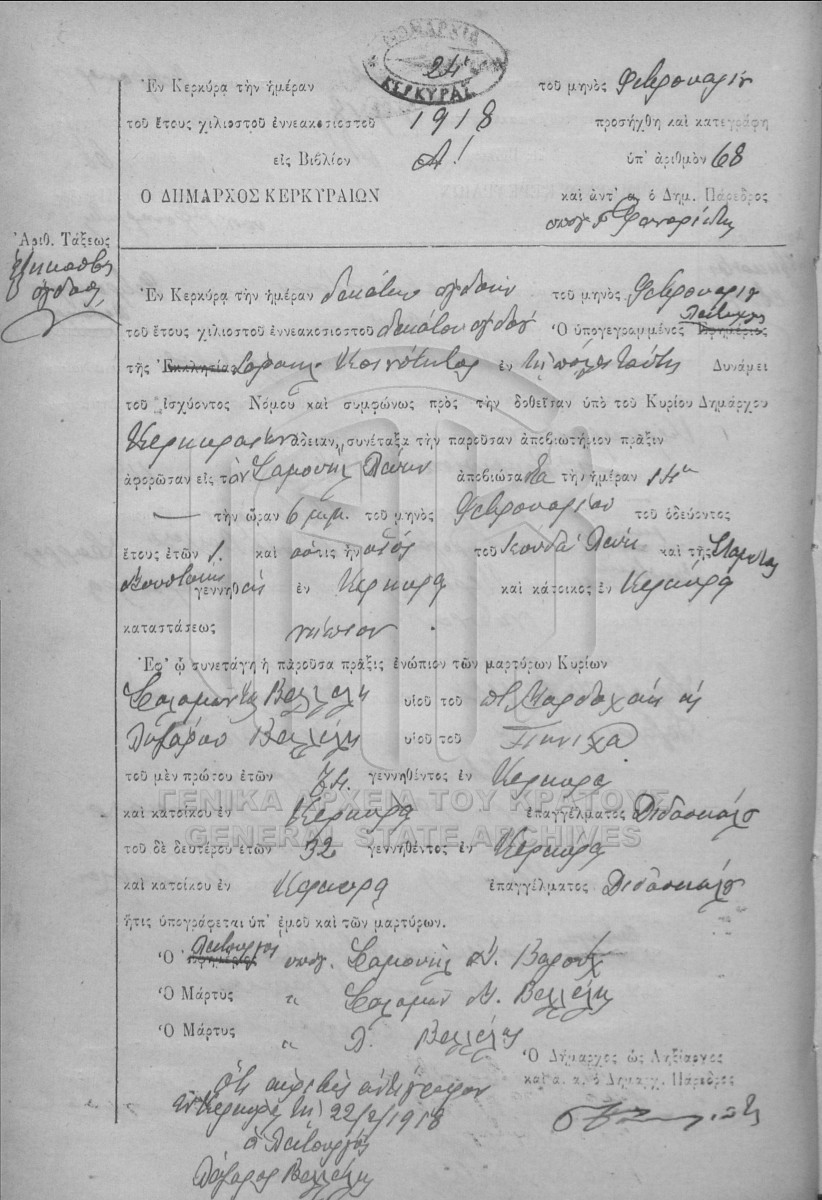 ΔΗΜΑΡΧΙΑ
ΚΕΡΚΥΡΑΣ
Ἐν Κερκύρᾳ τὴν ἡμέραν 24ῃ τοῦ μηνὸς Φεβρουαρίου
τοῦ ἔτους χιλιοστοῦ ἐννεακοσιοστοῦ 1918 προσήχθη καὶ κατεγράφη
εἰς Βιβλίον Α! ὑπ' ἀριθμὸν 68
Ο ΔΗΜΑΡΧΟΣ ΚΕΡΚΥΡΑΙΩΝ καὶ ἀντ' α. ὁ Δημ. Πάρεδρος
Ἀριθ. Τάξεως
Εἰκοστὸς
ὄγδοος
Ἐν Κερκύρᾳ τὴν ἡμέραν δεκάτην ὀγδόην τοῦ μηνὸς Φεβρουαρίου
τοῦ ἔτους χιλιοστοῦ ἐννεακοσιοστοῦ δεκάτου ὀγδόου Ὁ ὑπογεγραμμένος Ἐφημέριος Λειτουργὸς
τῆς Ἐκκλησίας Κοινότητος ἐν τῇ πόλει ταύτῃ Δυνάμει
τοῦ ἰσχύοντος Νόμου καὶ συμφώνως πρὸς τὴν δοθεῖσαν ὑπὸ τοῦ Κυρίου Δημάρχου
Κερκυραίων ἄδειαν, συνέταξα τὴν παροῦσαν ἀποβιωτήριον πρᾶξιν
ἀφορῶσαν εἰς τὸν Σαμουὴλ Λευῆν ἀποβιώσαντα τὴν ἡμέραν 14ῃ
— τὴν ὥραν 6 μ.μ. τοῦ μηνὸς Φεβρουαρίου τοῦ ὁδεύοντος
ἔτους ἐτῶν 1. καὶ ὅστις ἦν υἱὸς τοῦ Ἰουδᾶ Λευῆ καὶ τῆς
γεννηθεὶς ἐν Κερκύρᾳ καὶ κάτοικος ἐν Κερκύρᾳ
καταστάσεως νήπιον.
Ἐφ' ᾧ συνετάγη ἡ παροῦσα πρᾶξις ἐνώπιον τῶν μαρτύρων Κυρίων
Σολομῶντος Βελλέλη υἱοῦ τοῦ π. Μαρδοχαίου καὶ
Λαζάρου Βελλέλη υἱοῦ τοῦ
τοῦ μὲν πρώτου ἐτῶν 74. γεννηθέντος ἐν Κερκύρᾳ
ΓΕΝΙΚΑ ΑΡΧΕΙΑ ΤΟΥ ΚΡΑΤΟΥΣ
καὶ κατοίκου ἐν Κερκύρᾳ ἐπαγγέλματος Διδασκάλου
GENERAL STATE ARCHIVES
τοῦ δὲ δευτέρου ἐτῶν 32 γεννηθέντος ἐν Κερκύρᾳ
καὶ κατοίκου ἐν Κερκύρᾳ ἐπαγγέλματος Διδασκάλου
ἥτις ὑπογράφεται ὑπ' ἐμοῦ καὶ τῶν μαρτύρων.
Ὁ Ἐφημέριος Λειτουργὸς ὑπογ. Σαμουὴλ Βαροὺχ
Ὁ Μάρτυς " Σολομὼν Μ. Βελλέλης
Ὁ Μάρτυς " Λ. Βελλέλης
Ὁ Δήμαρχος ὡς Ληξίαρχος
καὶ α. α. ὁ Δημαρχ. Πάρεδρος
Ὅτι ἀκριβὲς ἀντίγραφον
Ἐν Κερκύρᾳ τῇ 22/2/1918
ὁ Λειτουργὸς
Λάζαρος Βελλέλης